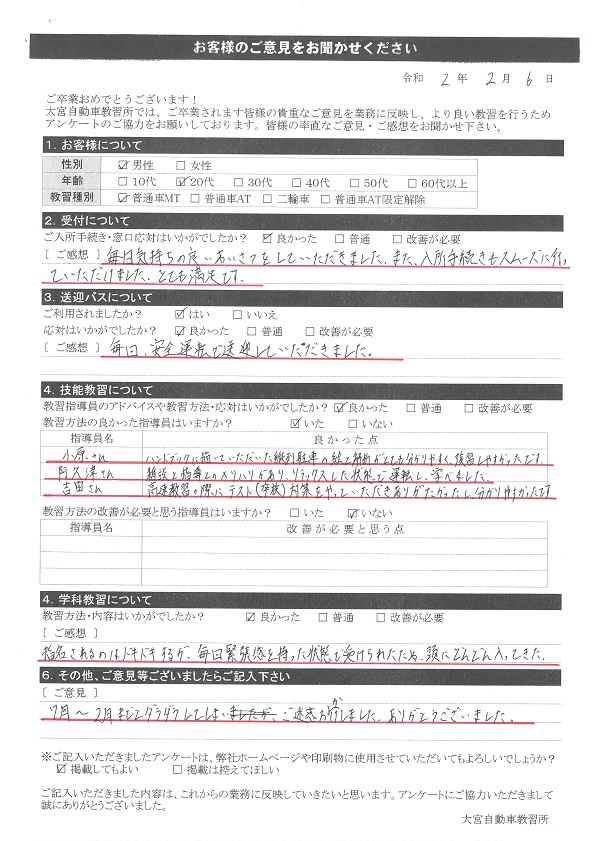 お客様のご意見をお聞かせください
令和 2 年 2 月 6 日
ご卒業おめでとうございます！
大宮自動車教習所では、ご卒業されます皆様の貴重なご意見を業務に反映し、より良い教習を行うため
アンケートのご協力をお願いしております。皆様の率直なご意見・ご感想をお聞かせ下さい。
1. お客様について
性別 ☑男性 □女性
年齢 □10代 ☑20代 □30代 □40代 □50代 □60代以上
教習種別 ☑普通車MT □普通車AT □二輪車 □普通車AT限定解除
2. 受付について
ご入所手続き・窓口応対はいかがでしたか？ ☑良かった □普通 □改善が必要
[ ご感想 ] 毎日気持ちの良いあいさつをしていただきました。また、入所手続きもスムーズに行っ
ていただけました。とても満足です。
3. 送迎バスについて
ご利用されましたか？ ☑はい □いいえ
応対はいかがでしたか？ ☑良かった □普通 □改善が必要
[ ご感想 ] 毎日、安全運転で送迎していただきました。
4. 技能教習について
教習指導員のアドバイスや教習方法・応対はいかがでしたか？ ☑良かった □普通 □改善が必要
教習方法の良かった指導員はいますか？ ☑いた □いない
指導員名 良かった点
小原さん ハンドブックに描いていただいた縦列駐車の絵と解説がとても分かりやすく、復習しやすかったです。
阿久津さん 雑談と指導とのメリハリがあり、リラックスした状態で運転し、学べました。
吉田さん 高速教習の際にテスト(卒検)対策をやっていただきありがたかったし、分かりやすかったです
教習方法の改善が必要と思う指導員はいますか？ □いた ☑いない
指導員名 改善が必要と思う点
4. 学科教習について
教習方法・内容はいかがでしたか？ ☑良かった □普通 □改善が必要
[ ご感想 ]
指名されるのはドキドキするが、毎日緊張感を持った状態で受けられたため、頭にどんどん入ってきた。
6. その他、ご意見等ございましたらご記入下さい
[ ご意見 ]
7月〜2月までダラダラしてしまいましたが、ご迷惑おかけしました。ありがとうございました。
※ご記入いただきましたアンケートは、弊社ホームページや印刷物に使用させていただいてもよろしいでしょうか？
☑掲載してもよい □掲載は控えてほしい
ご記入いただきました内容は、これからの業務に反映していきたいと思います。アンケートにご協力いただきまして
誠にありがとうございました。
大宮自動車教習所